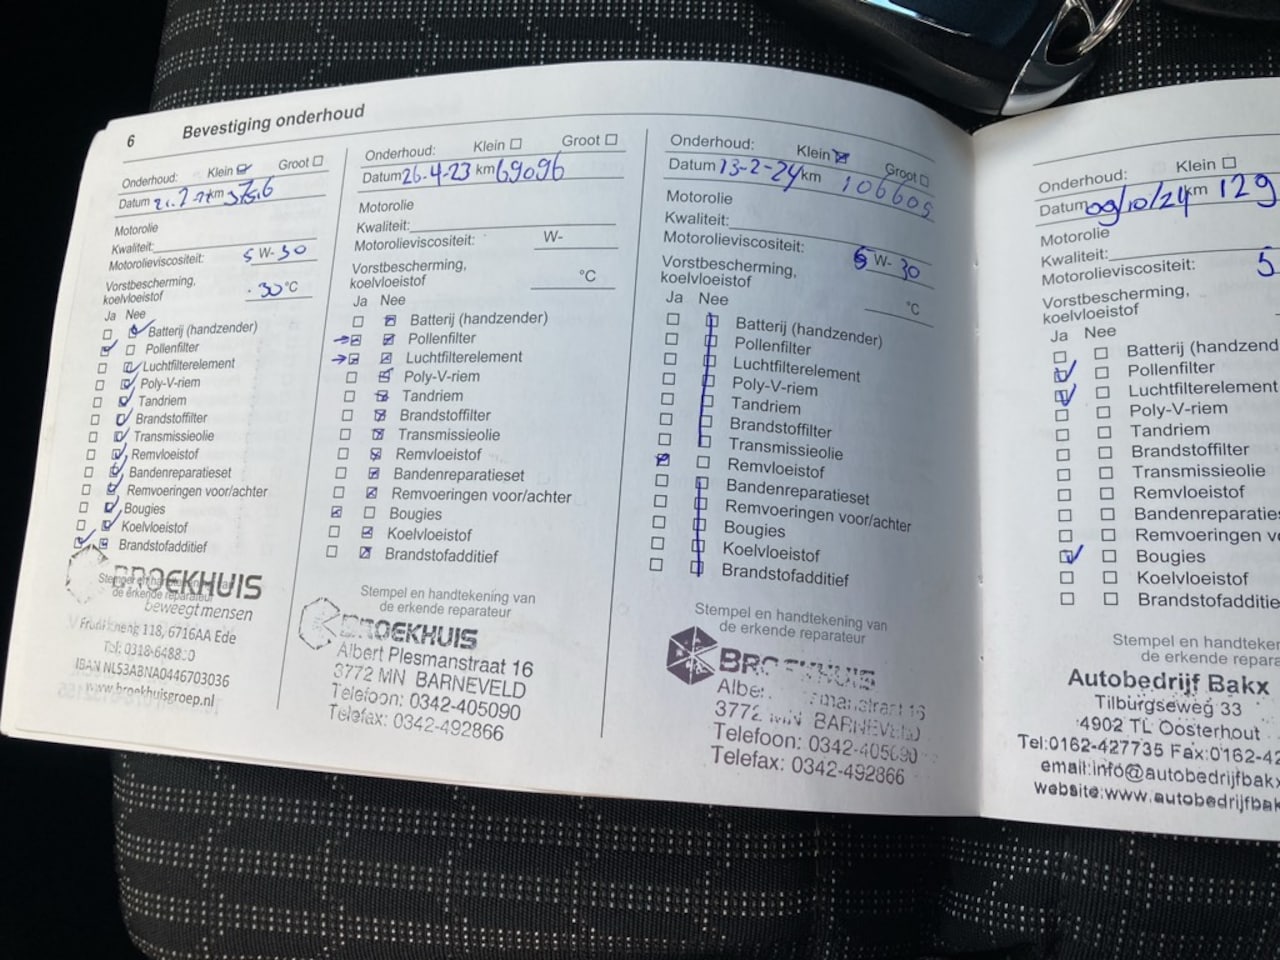 6 Bevestiging onderhoud
Onderhoud: Klein Groot
Datum km
Motorolie
Kwaliteit:
Motorolieviscositeit: 5 W- 30
Vorstbescherming,
koelvloeistof 30 °C
Ja Nee
Batterij (handzender)
Pollenfilter
Luchtfilterelement
Poly-V-riem
Tandriem
Brandstoffilter
Transmissieolie
Remvloeistof
Bandenreparatieset
Remvoeringen voor/achter
Bougies
Koelvloeistof
Brandstofadditief
BROEKHUIS
beweegt mensen
118, 6716AA Ede
IBAN NL53ABNA0446703036
www.broekhuisgroep.nl
Onderhoud: Klein Groot
Datum 26-4-23 km 69096
Motorolie
Kwaliteit:
Motorolieviscositeit: W-
Vorstbescherming,
koelvloeistof °C
Ja Nee
Batterij (handzender)
Pollenfilter
Luchtfilterelement
Poly-V-riem
Tandriem
Brandstoffilter
Transmissieolie
Remvloeistof
Bandenreparatieset
Remvoeringen voor/achter
Bougies
Koelvloeistof
Brandstofadditief
Stempel en handtekening van
de erkende reparateur
BROEKHUIS
Albert Plesmanstraat 16
3772 MN BARNEVELD
Telefoon: 0342-405090
Telefax: 0342-492866
Onderhoud: Klein Groot
Datum 13-2-24 km 106605
Motorolie
Kwaliteit:
Motorolieviscositeit: 5 W- 30
Vorstbescherming,
koelvloeistof °C
Ja Nee
Batterij (handzender)
Pollenfilter
Luchtfilterelement
Poly-V-riem
Tandriem
Brandstoffilter
Transmissieolie
Remvloeistof
Bandenreparatieset
Remvoeringen voor/achter
Bougies
Koelvloeistof
Brandstofadditief
Stempel en handtekening van
de erkende reparateur
BROEKHUIS
3772 MN BARNEVELD
Telefoon: 0342-405090
Telefax: 0342-492866
Onderhoud: Klein
Datum 09/10/24 km 129
Motorolie
Kwaliteit:
Motorolieviscositeit: 5
Vorstbescherming,
koelvloeistof
Ja Nee
Batterij (handzend
Pollenfilter
Luchtfilterelement
Poly-V-riem
Tandriem
Brandstoffilter
Transmissieolie
Remvloeistof
Bandenreparaties
Remvoeringen v
Bougies
Koelvloeistof
Brandstofadditie
Stempel en handteken
de erkende repara
Autobedrijf Bakx
Tilburgseweg 33
4902 TL Oosterhout
Tel:0162-427735 Fax:0162-42
email:info@autobedrijfbakx
website:www.autobedrijfbak